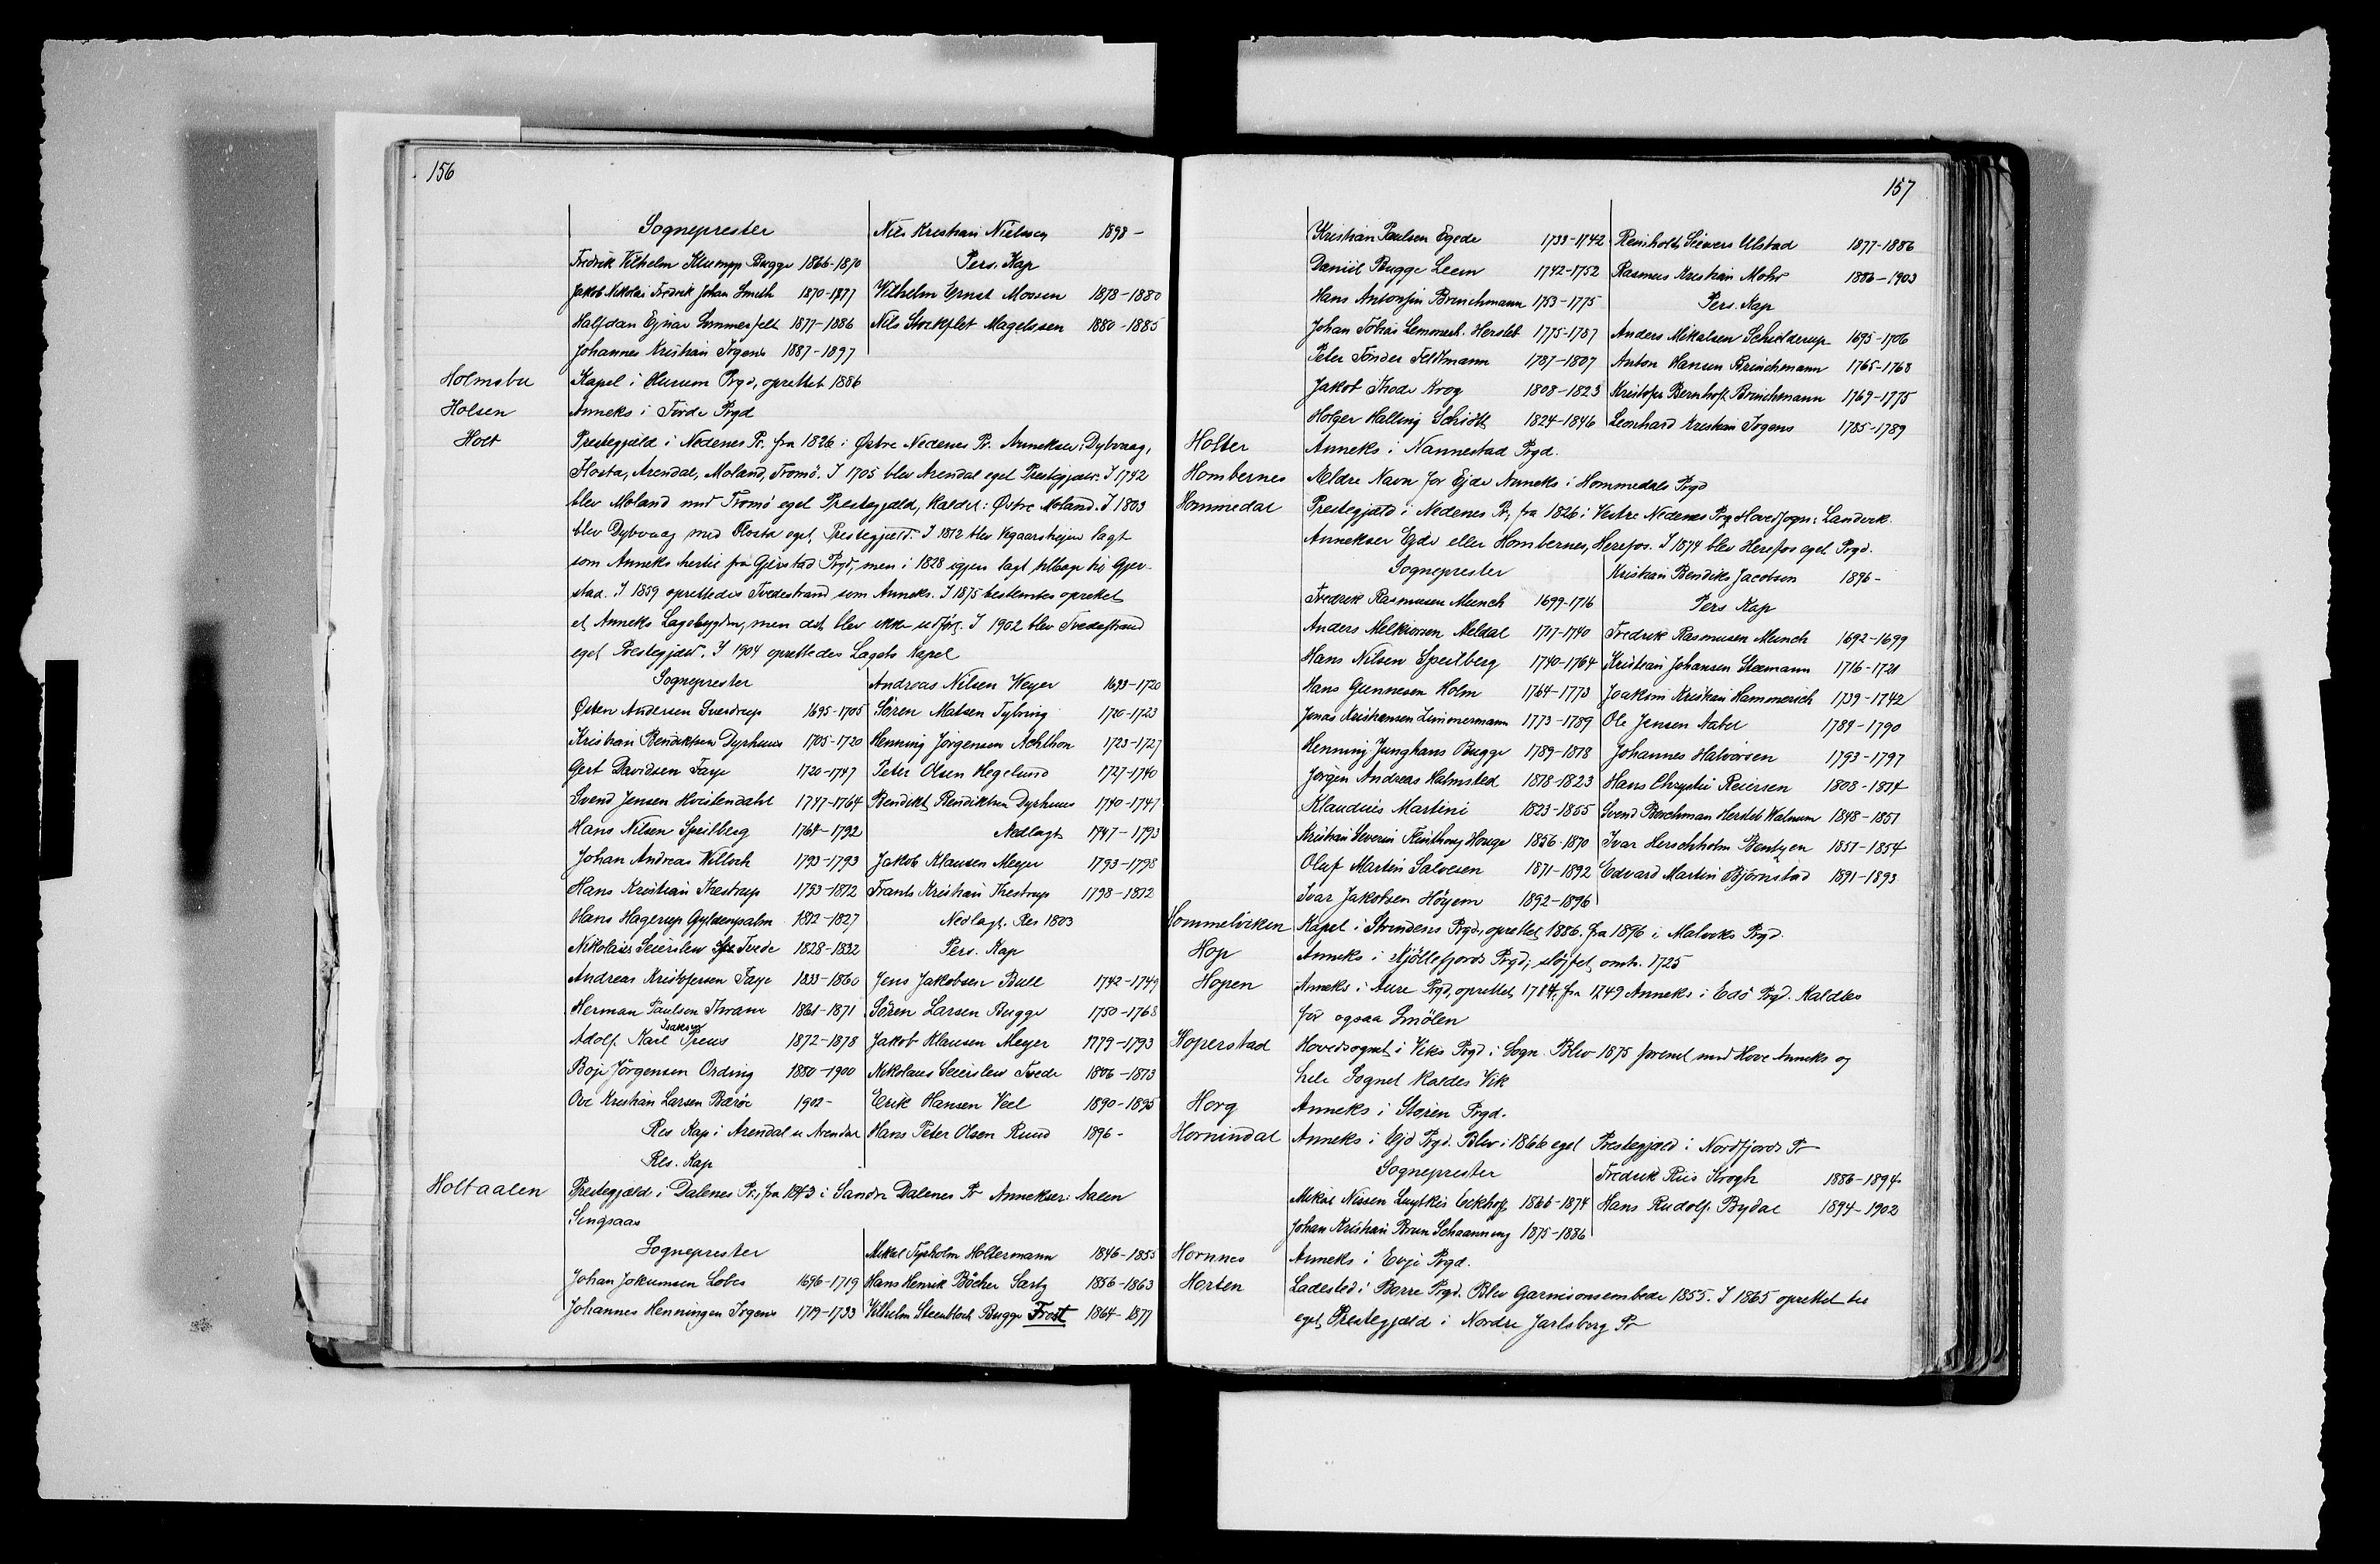 156
Sogneprester
Fredrik Vilhelm Klumpp Bugge 1866-1870
Jakob Nikolai Fredrik Johan Smith 1870-1877
Halfdan Ejnar Sommerfelt 1877-1886
Johannes Kristian Irgens 1887-1897
Nils Kristian Nielsen 1898-
Pers. Kap
Vilhelm Ernst Moosen 1878-1880
Nils Stockflet Magelssen 1880-1885
Holmsbu Kapel i Hurum Prgd, oprettet 1886
Holsen Anneks i Førde Prgd
Holt Prestegjæld i Nedenes Pr. fra 1826 i Østre Nedenes Pr. Annekser: Dybvaag,
Flosta, Arendal, Moland, Tromö. I 1705 blev Arendal eget Prestegjæld. I 1742
blev Moland med Tromö eget Prestegjæld, kaldet: Østre Moland. I 1803
blev Dybvaag med Flosta eget Prestegjæld. I 1812 blev Vegaarsheien lagt
som Anneks hertil fra Gjerstad Prgd, men i 1828 igjen lagt tilbage til Gjer-
stad. I 1859 oprettedes Tvedestrand som Anneks. I 1875 bestemtes oprettet
et Anneks Lagebygden, men det blev ikke udført. I 1902 blev Tvedestrand
eget Prestegjæld. I 1904 oprettedes Lagets Kapel
Sogneprester
Østen Andersen Sverdrup 1695-1705
Kristian Bendiktsen Dyrhuus 1705-1720
Gert Davidsen Faye 1720-1747
Svend Jensen Hvistendahl 1747-1764
Hans Nilsen Speilberg 1764-1792
Johan Andreas Willoch 1793-1793
Hans Kristian Thestrup 1793-1812
Hans Hagerup Gyldenpalm 1812-1827
Nikolaus Seierslev Tvede 1828-1832
Andreas Kristofersen Faye 1833-1860
Herman Paulsen Thrane 1861-1871
Isaksen
Adolf Karl Preus 1872-1878
Boje Jörgensen Ording 1880-1900
Ove Kristian Larsen Barøe 1902-
Res Kap i Arendal u Arendal
Res. Kap
Andreas Nilsen Weyer 1693-1720
Sören Matsen Tybring 1720-1723
Henning Jörgensen Achthon 1723-1727
Peter Olsen Hegelund 1727-1740
Bendikt Bendiktsen Dyrhuus 1740-1747
Nedlagt 1747-1793
Jakob Klausen Meyer 1793-1798
Frants Kristian Thestrup 1798-1812
Nedlagt. Res 1803
Pers. Kap
Jens Jakobsen Bull 1742-1749
Sören Larsen Bugge 1750-1768
Jakob Klausen Meyer 1779-1793
Nikolaus Seierslev Tvede 1806-1813
Erik Hansen Veel 1890-1895
Hans Peter Olsen Ruud 1896-
Holtaalen Prestegjæld i Dalenes Pr., fra 1843 i Søndre Dalenes Pr Annekser: Aalen
Singsaas
Sogneprester
Johan Jokumsen Lobes 1696-1719
Johannes Henningen Irgens 1719-1733
Mikal Tyrholm Hollermann 1846-1855
Hans Henrik Böcher Sartz 1856-1863
Vilhelm Steenbloch Bugge Frost 1864-1877
157
Kristian Paulsen Egede 1733-1742
Daniel Bugge Leem 1742-1752
Hans Antonsen Brinchmann 1753-1775
Johan Tobias Lemmert. Herslet 1775-1787
Peter Tönder Feltmann 1787-1807
Jakob Thode Krog 1808-1823
Holger Halling Schiött 1824-1846
Reinholt Sievers Ulstad 1877-1886
Rasmus Kristian Mohr 1886-1903
Pers. Kap
Anders Mikalsen Schielderup 1695-1706
Anton Hansen Brinchmann 1765-1768
Kristofer Bernhoft Brinchmann 1769-1775
Leonhard Kristian Irgens 1785-1789
Holter Anneks i Nannestad Prgd.
Hombernes Ældre Navn for Ejde Anneks i Hommedals Prgd
Hommedal Prestegjæld i Nedenes Pr, fra 1826 i Vestre Nedenes Prg Hovedsogn: Landvik.
Annekser Egde eller Hombernes, Herefos. I 1874 blev Herefos eget Prgd.
Sogneprester
Fredrik Rasmusen Munch 1699-1716
Anders Melkiorsen Meldal 1717-1740
Hans Nilsen Speilberg 1740-1764
Hans Gunnesen Holm 1764-1773
Jonas Kristiansen Zimmermann 1773-1789
Henning Junghans Bugge 1789-1878
Jørgen Andreas Holmsted 1818-1823
Klaudius Martini 1823-1855
Kristian Severin Hauge 1856-1870
Oluf Martin Salvesen 1871-1892
Ivar Jakobsen Höyem 1892-1896
Kristian Bendiks Jacobsen 1896-
Pers Kap
Fredrik Rasmusen Munch 1692-1699
Kristian Johansen Steemann 1716-1721
Joakim Kristian Hammerich 1739-1742
Ole Jensen Aabel 1789-1790
Johannes Halvorsen 1793-1797
Hans Chrystie Reiersen 1808-1814
Svend Borchman Hersleb Walnum 1848-1851
Ivar Herschholm Stentzen 1851-1854
Edvard Martin Bjørnstad 1891-1893
Hommelviken Kapel i Strindens Prgd, oprettet 1886. fra 1896 i Malviks Prgd.
Hop Anneks i Kjöllefjords Prgd; sløjfet omtr. 1725
Hopen Anneks i Aure Prgd, oprettet 1784, fra 1749 Anneks i Edö Prgd. Kaldtes
før ogsaa Smölen
Hoperstad Hovedsognet i Viks Prgd i Sogn. Blev 1875 forenet med Hove Anneks og
hele Sognet kaldes Vik
Horg Anneks i Støren Prgd.
Hornindal Anneks i Ejd Prgd. Blev i 1866 eget Prestegjæld i Nordfjords Pr
Sogneprester
Mikal Nissen Luytkis Eckhoff 1866-1874
Johan Kristian Brun Schaanning 1875-1886
Fredrik Riis Krogh 1886-1894
Hans Rudolf Bydal 1894-1902
Hornnes Anneks i Evje Prgd.
Horten Ladested i Borre Prgd. Blev Garnisonsembede 1855. I 1865 oprettet til
eget Prestegjæld i Nordre Jarlsberg Pr